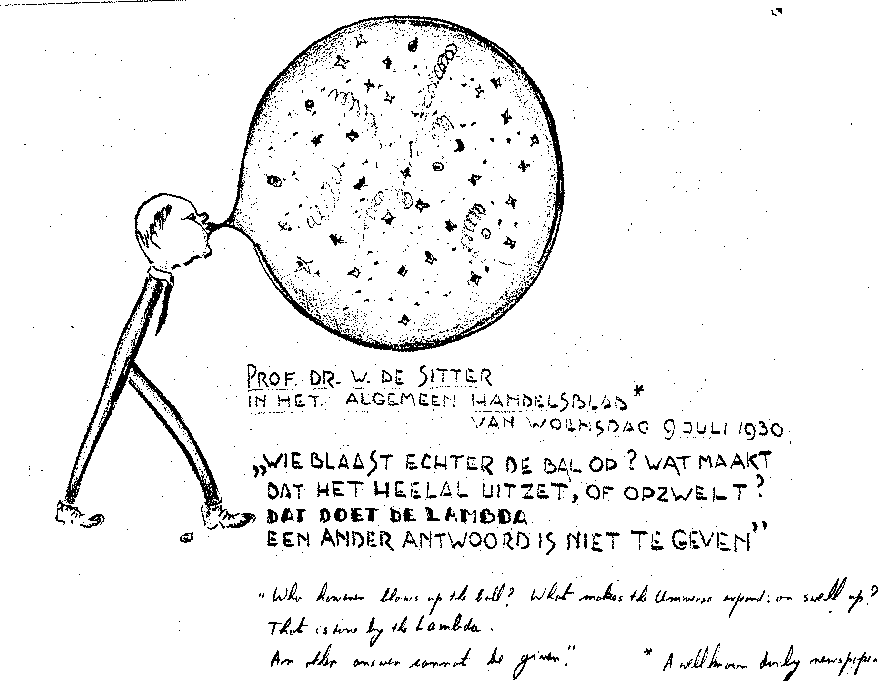 PROF. DR. W. DE SITTER
IN HET ALGEMEEN HANDELSBLAD*
VAN WOENSDAG 9 JULI 1930.
„WIE BLAAST ECHTER DE BAL OP? WAT MAAKT
DAT HET HEELAL UITZET, OF OPZWELT?
DAT DOET DE LAMBDA
EEN ANDER ANTWOORD IS NIET TE GEVEN”
"Who however blows up the ball? What makes the Universe expand, or swell up?
That is done by the Lambda.
An other answer cannot be given."
* A well known daily newspaper